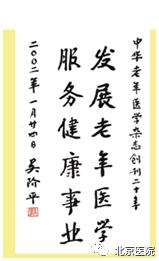 中华老年医学杂志创刊二十年
发展老年医学
服务健康事业
二〇〇二年一月廿四日 吴阶平
北京医院